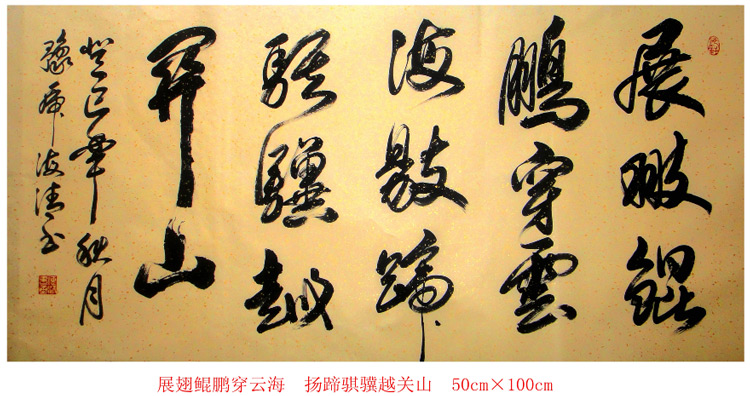 展翅鯤
鵬穿雲
海敭蹄
騏驥越
關山
癸巳年秋月
海清书
展翅鲲鹏穿云海　扬蹄骐骥越关山　50cm×100cm